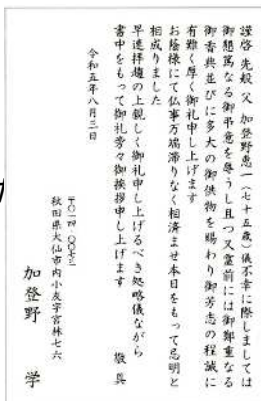 謹啓 先般 父 加登野恵一(七十五歳)儀不幸に際しましては
御懇篤なる御弔意を辱うし且つ又霊前には御鄭重なる
御香典並びに多大の御供物を賜わり御芳志の程誠に
有難く厚く御礼申し上げます
お蔭様にて仏事万端滞りなく相済ませ本日をもって忌明と
相成りました
早速拝趨の上親しく御礼申し上げるべき処略儀ながら
書中をもって御礼旁々御挨拶申し上げます 敬具
令和五年八月三日
〒〇一四-〇〇七二
秋田県大仙市内小友字宮林七六
加登野 学